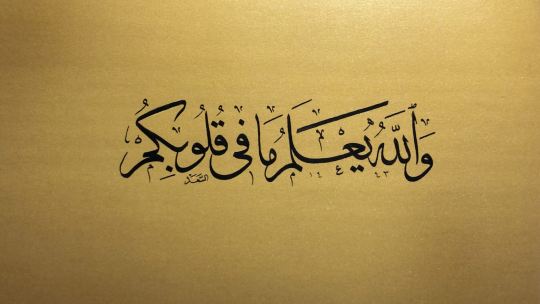 وَٱللَّهُ يَعْلَمُ مَا فِى قُلُوبِكُمْ